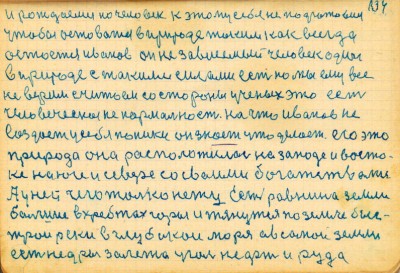 834
и рождаеми но человек к этому себя не подготовил
чтобы оставатся в природе таким как всегда
остается иванов он независемый человек один
в природе с такими силами есть но мы ему все
не верим считаем со стороны ученых это есть
человеческая не нармалность. на что иванов не
воздает у себя паники он знает что делает. его это
природа она расположилас на западе и восто-
ке на юге и севере со своими богатствами
А у ней чего толко нету Есть равнина земли
болшие в хребтах горы и тянутся по земле быс-
трои реки в глубокои моря а в самой земли
есть недры залежа угол нефт и руда